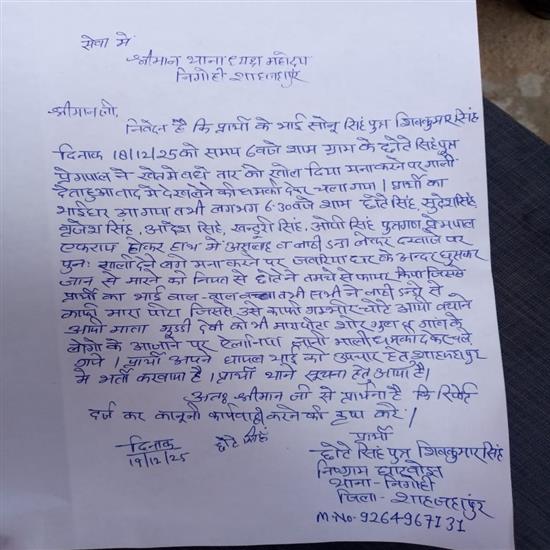 सेवा में
श्रीमान थाना ध्यक्ष महोदय
निगोही शाहजहांपुर
श्रीमान जी,
निवेदन है कि प्रार्थी के भाई सोनू सिंह पुत्र शिवकुमार सिंह
दिनाक 18/12/25 को समय 6 बजे शाम ग्राम के छोटे सिंह पुत्र
प्रेमपाल ने खेत मे बंधे तार को खोल दिया मना करने पर गाली
देता हुआ बाद मे देख लेने की धमकी देकर चला गया। प्रार्थी का
भाई घर आ गया तभी लगभग 6:30 बजे शाम छोटे सिंह, सुदेश सिंह
बृजेश सिंह, आदेश सिंह, सिंह, ओपी सिंह पुत्रगण प्रेमपाल
एकराय होकर हाथ मे असलाह व लाठी डन्डा लेकर दरवाजे पर
पुनः गाली देने लगे मना करने पर जबरिया घर के अन्दर घुसकर
जान से मारने की नियत से छोटे ने तमंचे से फायर किया जिससे
प्रार्थी का भाई बाल-बाल बचा तभी सभी ने लाठी डन्डे से
काफी मारा पीटा जिससे उसे काफी गम्भीर चोटे आयी बचाने
आयी माता गुड्डी देवी को भी मारा पीटा शोर गुल व गांव के
लोगो के आ जाने पर जानी माली धमकी देकर चले
गये। प्रार्थी अपने घायल भाई को उपचार हेतु शाहजहांपुर
मे भर्ती करवाया है। प्रार्थी थाने सूचना हेतु आया है।
अतः श्रीमान जी से प्रार्थना है कि रिपोर्ट
दर्ज कर कानूनी कार्यवाही करने की कृपा करें।
दिनाक
19/12/25
छोटे सिंह
प्रार्थी
छोटे सिंह पुत्र शिवकुमार सिंह
नि०ग्राम
थाना - निगोही
जिला - शाहजहांपुर
M.No- 9264967131